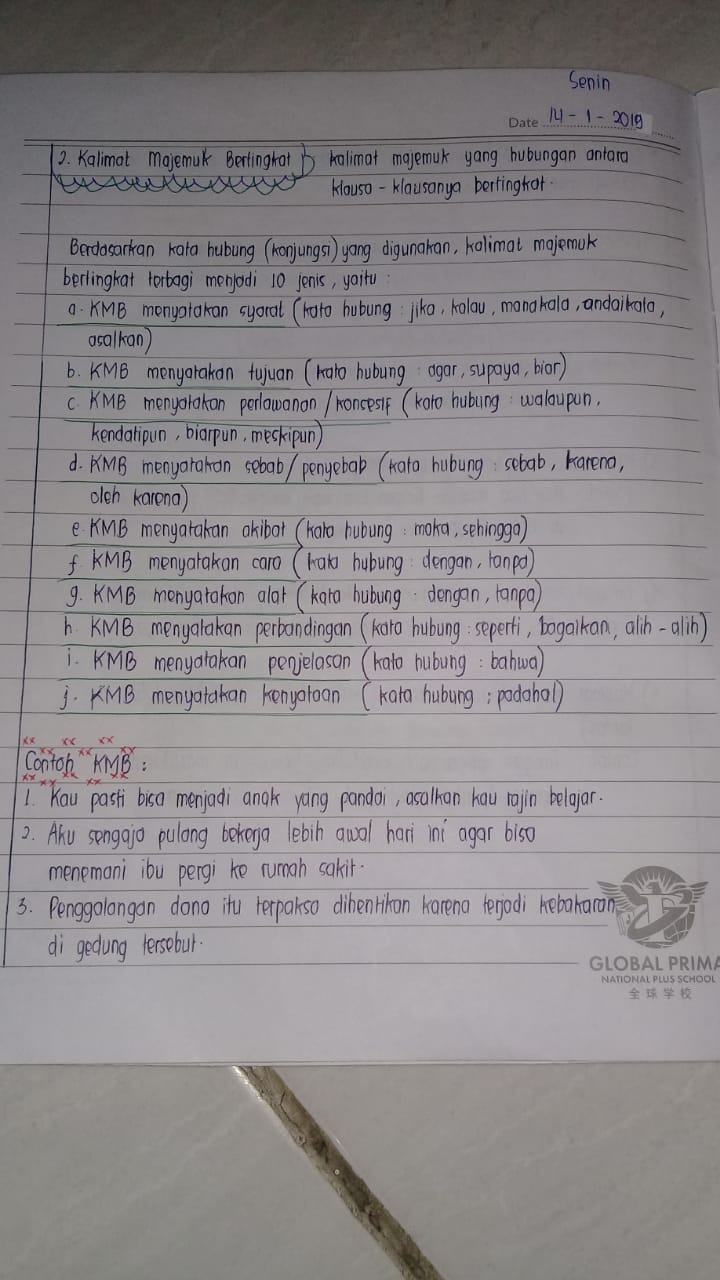 Senin
Date 14 - 1 - 2019
2. Kalimat Majemuk Bertingkat kalimat majemuk yang hubungan antara
klausa - klausanya bertingkat.
Berdasarkan kata hubung (konjungsi) yang digunakan, kalimat majemuk
bertingkat terbagi menjadi 10 jenis, yaitu :
a. KMB menyatakan syarat (kata hubung : jika, kalau, manakala, andaikala,
asalkan)
b. KMB menyatakan tujuan (kata hubung : agar, supaya, biar)
c. KMB menyatakan perlawanan / konsesif (kata hubung : walaupun,
kendatipun, biarpun, meskipun)
d. KMB menyatakan sebab / penyebab (kata hubung : sebab, karena,
oleh karena)
e. KMB menyatakan akibat (kata hubung : maka, sehingga)
f. KMB menyatakan cara (kata hubung : dengan, tanpa)
g. KMB menyatakan alat (kata hubung : dengan, tanpa)
h. KMB menyatakan perbandingan (kata hubung : seperti, bagaikan, alih - alih)
i. KMB menyatakan penjelasan (kata hubung : bahwa)
j. KMB menyatakan kenyataan (kata hubung ; padahal)
Contoh KMB :
1. Kau pasti bisa menjadi anak yang pandai, asalkan kau rajin belajar.
2. Aku sengaja pulang bekerja lebih awal hari ini agar bisa
menemani ibu pergi ke rumah sakit.
3. Penggalangan dana itu terpaksa dihentikan karena terjadi kebakaran
di gedung tersebut.
GLOBAL PRIMA
NATIONAL PLUS SCHOOL
全球学校